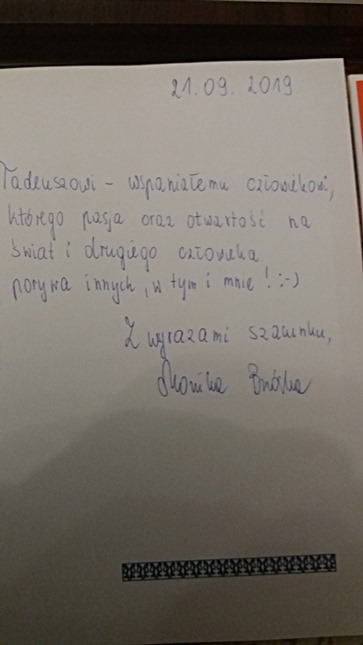 21.09.2019
Tadeuszowi - wspaniałemu człowiekowi,
którego pasja oraz otwartość na
świat i drugiego człowieka
porywa innych, w tym i mnie! :-)
Z wyrazami szacunku,
Monika